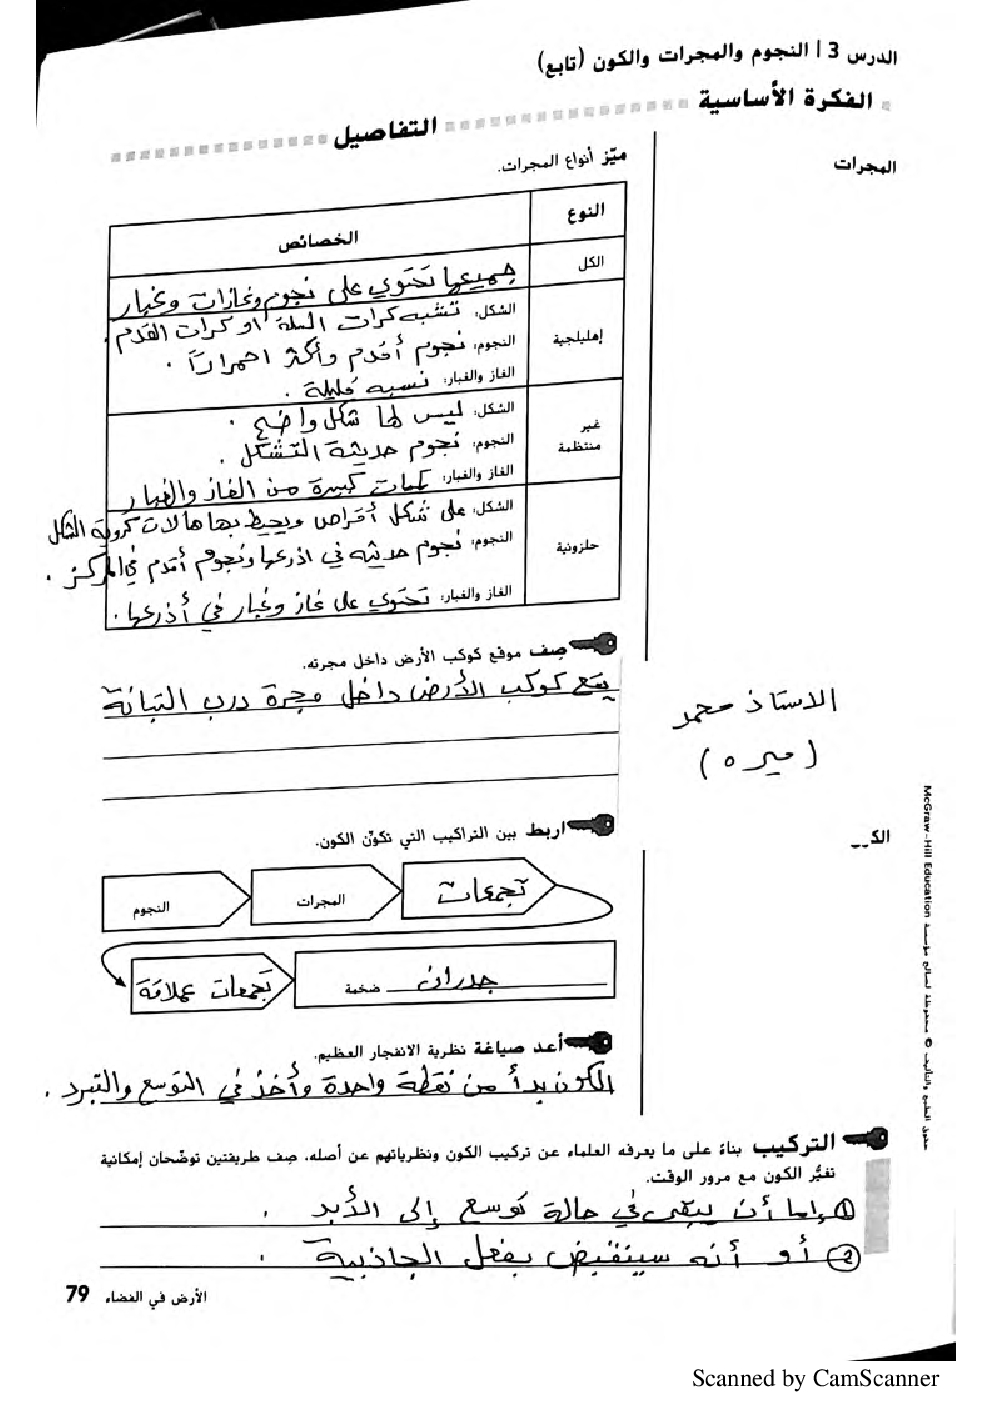 الدرس 3 | النجوم والمجرات والكون (تابع)
الفكرة الأساسية
التفاصيل
المجرات
ميّز أنواع المجرات.
النوع
الخصائص
الكل
جميعها تحتوي على نجوم وغازات وغبار
إهليلجية
الشكل: تشبه كرات السلة او كرات القدم.
النجوم: نجوم أقدم وأكثر احمرارًا.
الغاز والغبار: نسبه قليلة.
غير منتظمة
الشكل: ليس لها شكل واضح.
النجوم: نجوم حديثة التشكل.
الغاز والغبار: كميات كبيرة من الغاز والغبار
حلزونية
الشكل: على شكل أقراص ويحيط بها هالات كروية الشكل
النجوم: نجوم حديثه في اذرعها ونجوم أقدم في المركز.
الغاز والغبار: تحتوي على غاز وغبار في أذرعها.
صِف موقع كوكب الأرض داخل مجرته.
يقع كوكب الأرض داخل مجرة درب التبانة
الاستاذ محمد
اربط بين التراكيب التي تكوّن الكون.
النجوم
المجرات
تجمعات
تجمعات عملاقة
جدران ضخمة
أعد صياغة نظرية الانفجار العظيم.
الكون بدأ من نقطة واحدة وأخذ في التوسع والتبرد.
التركيب بناءً على ما يعرفه العلماء عن تركيب الكون ونظرياتهم عن أصله، صِف طريقتين توضّحان إمكانية
تغيُّر الكون مع مرور الوقت.
① إما أن يبقى في حالة توسع إلى الأبد.
② أو أنه سينقبض بفعل الجاذبية.
79 الأرض في الفضاء
حقوق الطبع والتأليف © محفوظة لصالح مؤسسة McGraw-Hill Education
Scanned by CamScanner